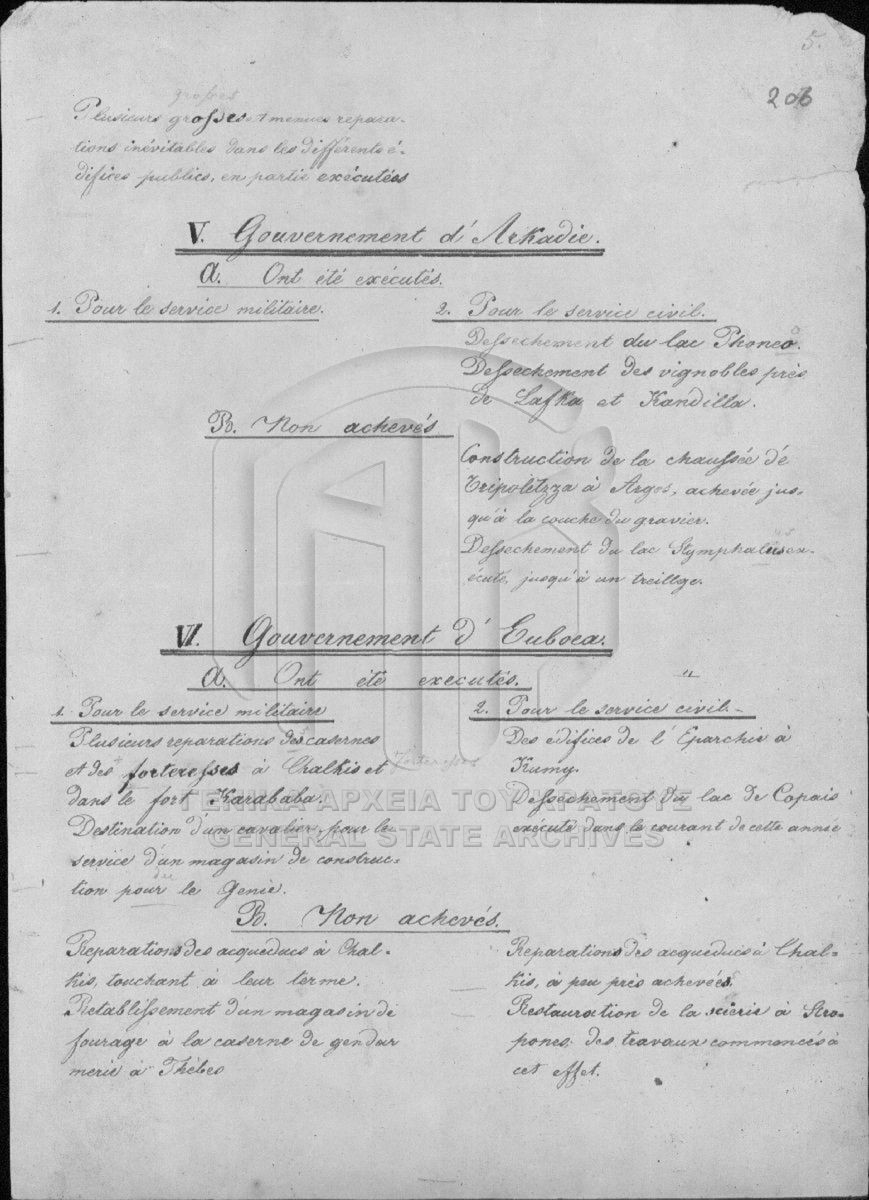 5.
206
grosses
Plusieurs grosses et menues repara-
tions inévitables dans les différents é-
difices publics, en partie exécutées
V. Gouvernement d'Arkadie.
a. Ont été exécutés.
1. Pour le service militaire.
2. Pour le service civil.
Dessechement du lac Phonea.
Dessechement des vignobles près
de Lafka et Kandilla.
B. Non achevés
Construction de la chaussée de
Tripolitzza à Argos, achevée jus-
qu'à la couche du gravier.
Dessechement du lac Stymphalus ex-
écuté, jusqu'à un treillge.
VI. Gouvernement d'Euboea.
a. Ont été executés.
1. Pour le service militaire
Plusieurs reparations des casernes
et des forteresses à Chalkis et
forteresses
dans le fort Karababa.
Destination d'un cavalier pour le
service d'un magasin de construc-
tion pour le Genie.
du
2. Pour le service civil.
Des édifices de l'Eparchie à
Kumy.
Dessechement du lac de Copais
exécuté dans le courant de cette année
B. Non achevés.
Reparations des acqueducs à Chal-
kis, touchant à leur terme.
Retablissement d'un magasin de
fourage à la caserne de gendar
merie à Thèbes
Reparations des acqueducs à Chal-
kis, à peu près achevées
Restauration de la scierie à Stro-
pones des travaux commencés à
cet effet.
ΓΕΝΙΚΑ ΑΡΧΕΙΑ ΤΟΥ ΚΡΑΤΟΥΣ
GENERAL STATE ARCHIVES